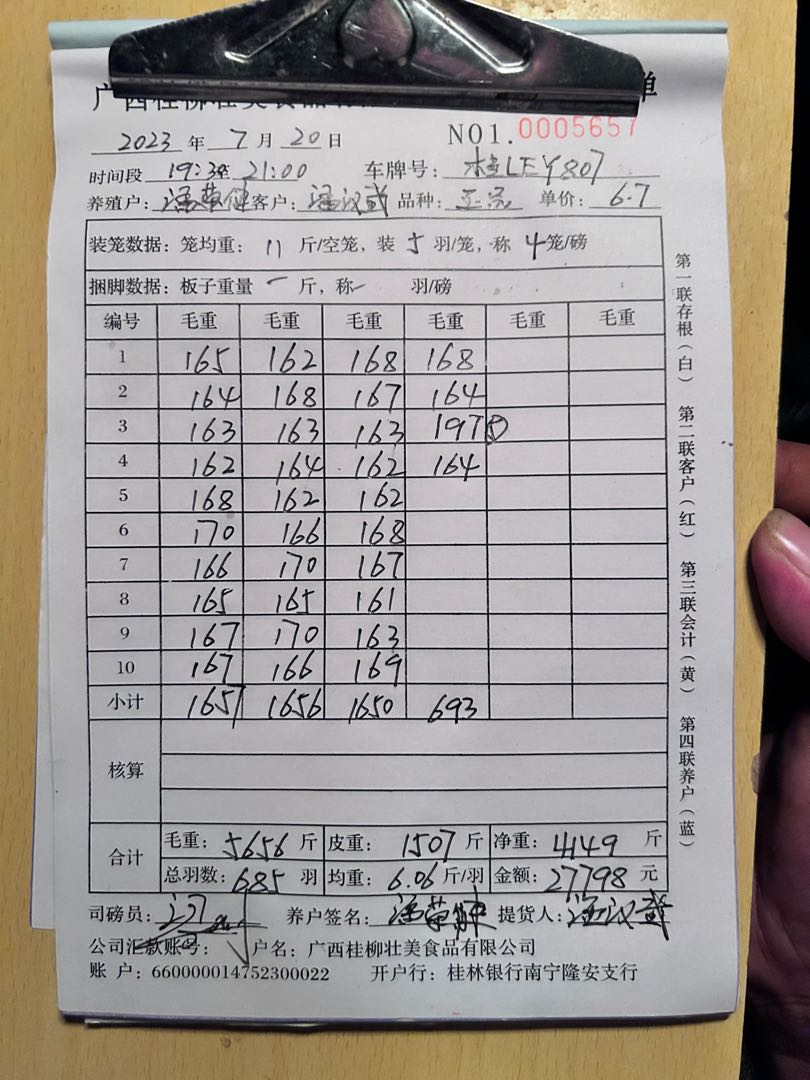 广西桂柳壮美食品 单
2023 年 7 月 20 日 NO1. 0005657
时间段 19:30 21:00 车牌号: 桂LEY807
养殖户: 潘荣健 客户: 潘汉武 品种: 正品 单价: 6.7
装笼数据: 笼均重: 11 斤/空笼, 装 5 羽/笼, 称 4 笼/磅
捆脚数据: 板子重量 一 斤, 称 一 羽/磅
编号 毛重 毛重 毛重 毛重 毛重 毛重
1 165 162 168 168
2 164 168 167 164
3 163 163 163 197⑤
4 162 164 162 164
5 168 162 162
6 170 166 168
7 166 170 167
8 165 165 161
9 167 170 163
10 167 166 169
小计 1657 1656 1650 693
核算
合计 毛重: 5656 斤 皮重: 1507 斤 净重: 4149 斤
总羽数: 685 羽 均重: 6.06 斤/羽 金额: 27798 元
司磅员: 养户签名: 潘荣健 提货人: 潘汉武
公司汇款账号: 户名: 广西桂柳壮美食品有限公司
账 户: 660000014752300022 开户行: 桂林银行南宁隆安支行
第一联存根(白) 第二联客户(红) 第三联会计(黄) 第四联养户(蓝)